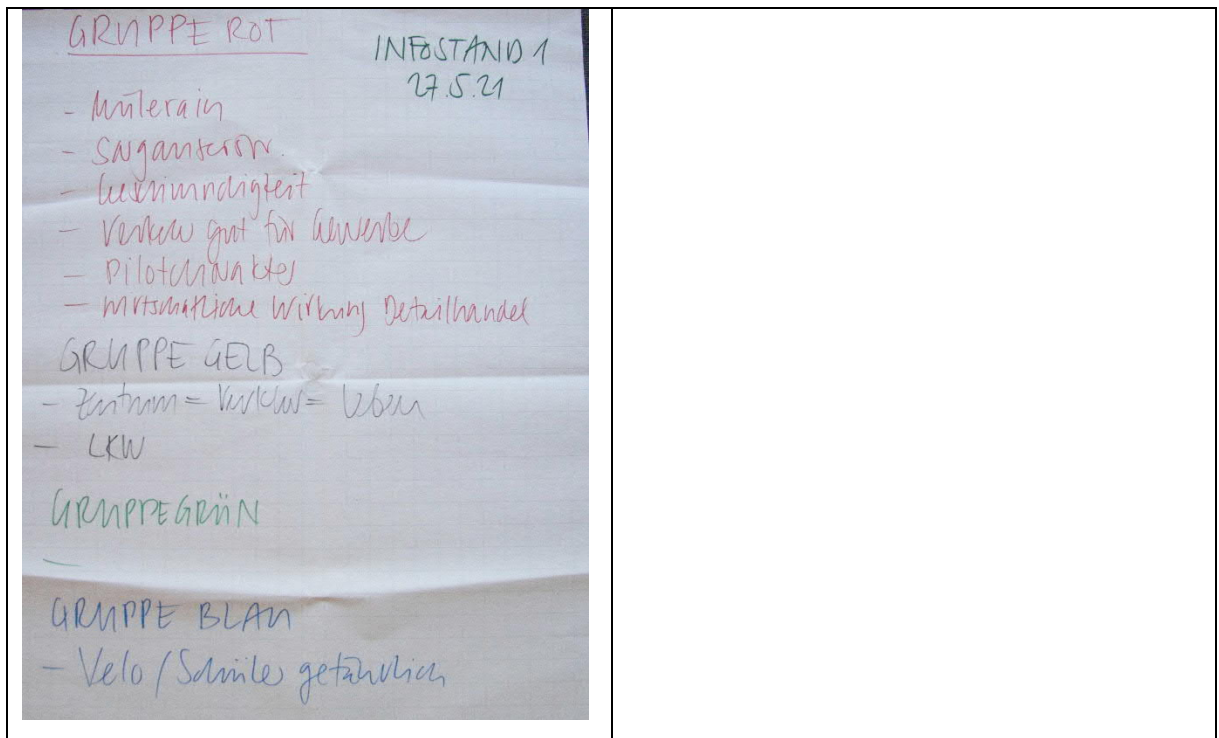 GRUPPE ROT
INFOSTAND 1
27.5.21
- Mülerain
- Sarganserstr.
- Geschwindigkeit
- Verkehr gut für Gewerbe
- Pilotcharakter
- wirtschaftliche Wirkung Detailhandel
GRUPPE GELB
- Zentrum = Verkehr = Leben
- LKW
GRUPPE GRÜN
-
GRUPPE BLAU
- Velo / Schüler gefährlich